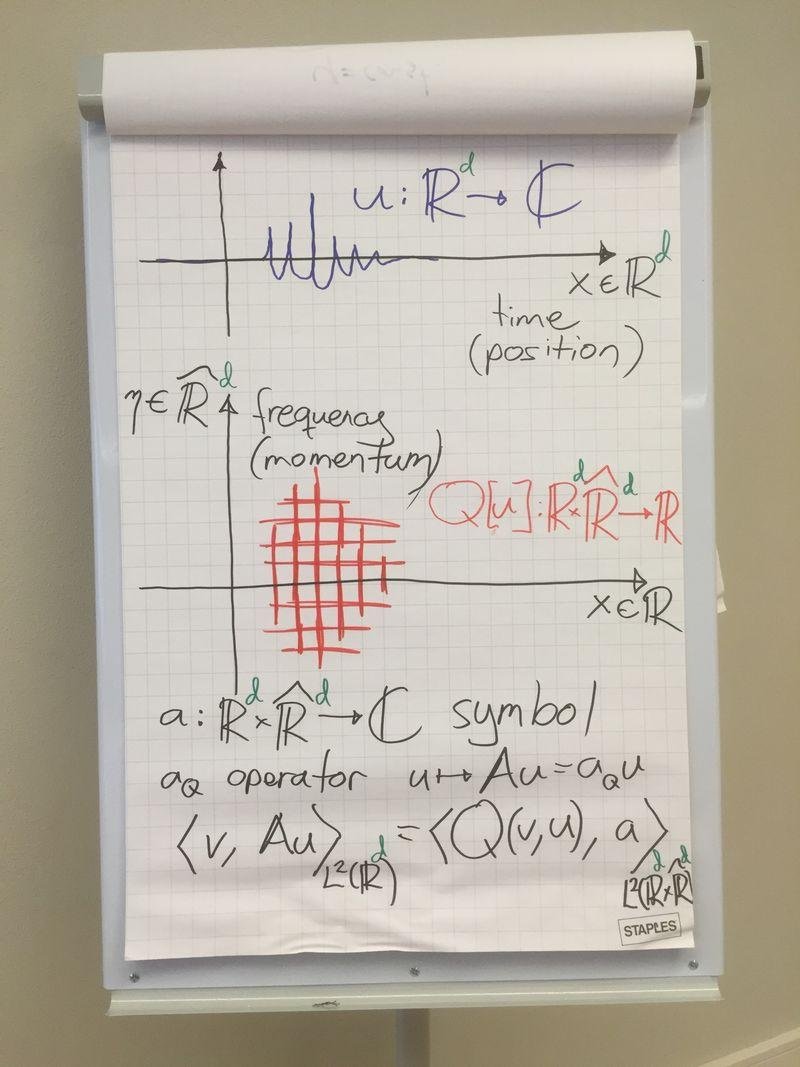 u: ℝᵈ → ℂ
x ∈ ℝᵈ
time
(position)
η ∈ ℝ̂ᵈ
frequency
(momentum)
Q[u]: ℝᵈ × ℝ̂ᵈ → ℝ
x ∈ ℝ
a: ℝᵈ × ℝ̂ᵈ → ℂ symbol
a_Q operator u ↦ Au = a_Q u
⟨v, Au⟩_L²(ℝᵈ) = ⟨Q(v,u), a⟩_L²(ℝᵈ×ℝ̂ᵈ)
STAPLES